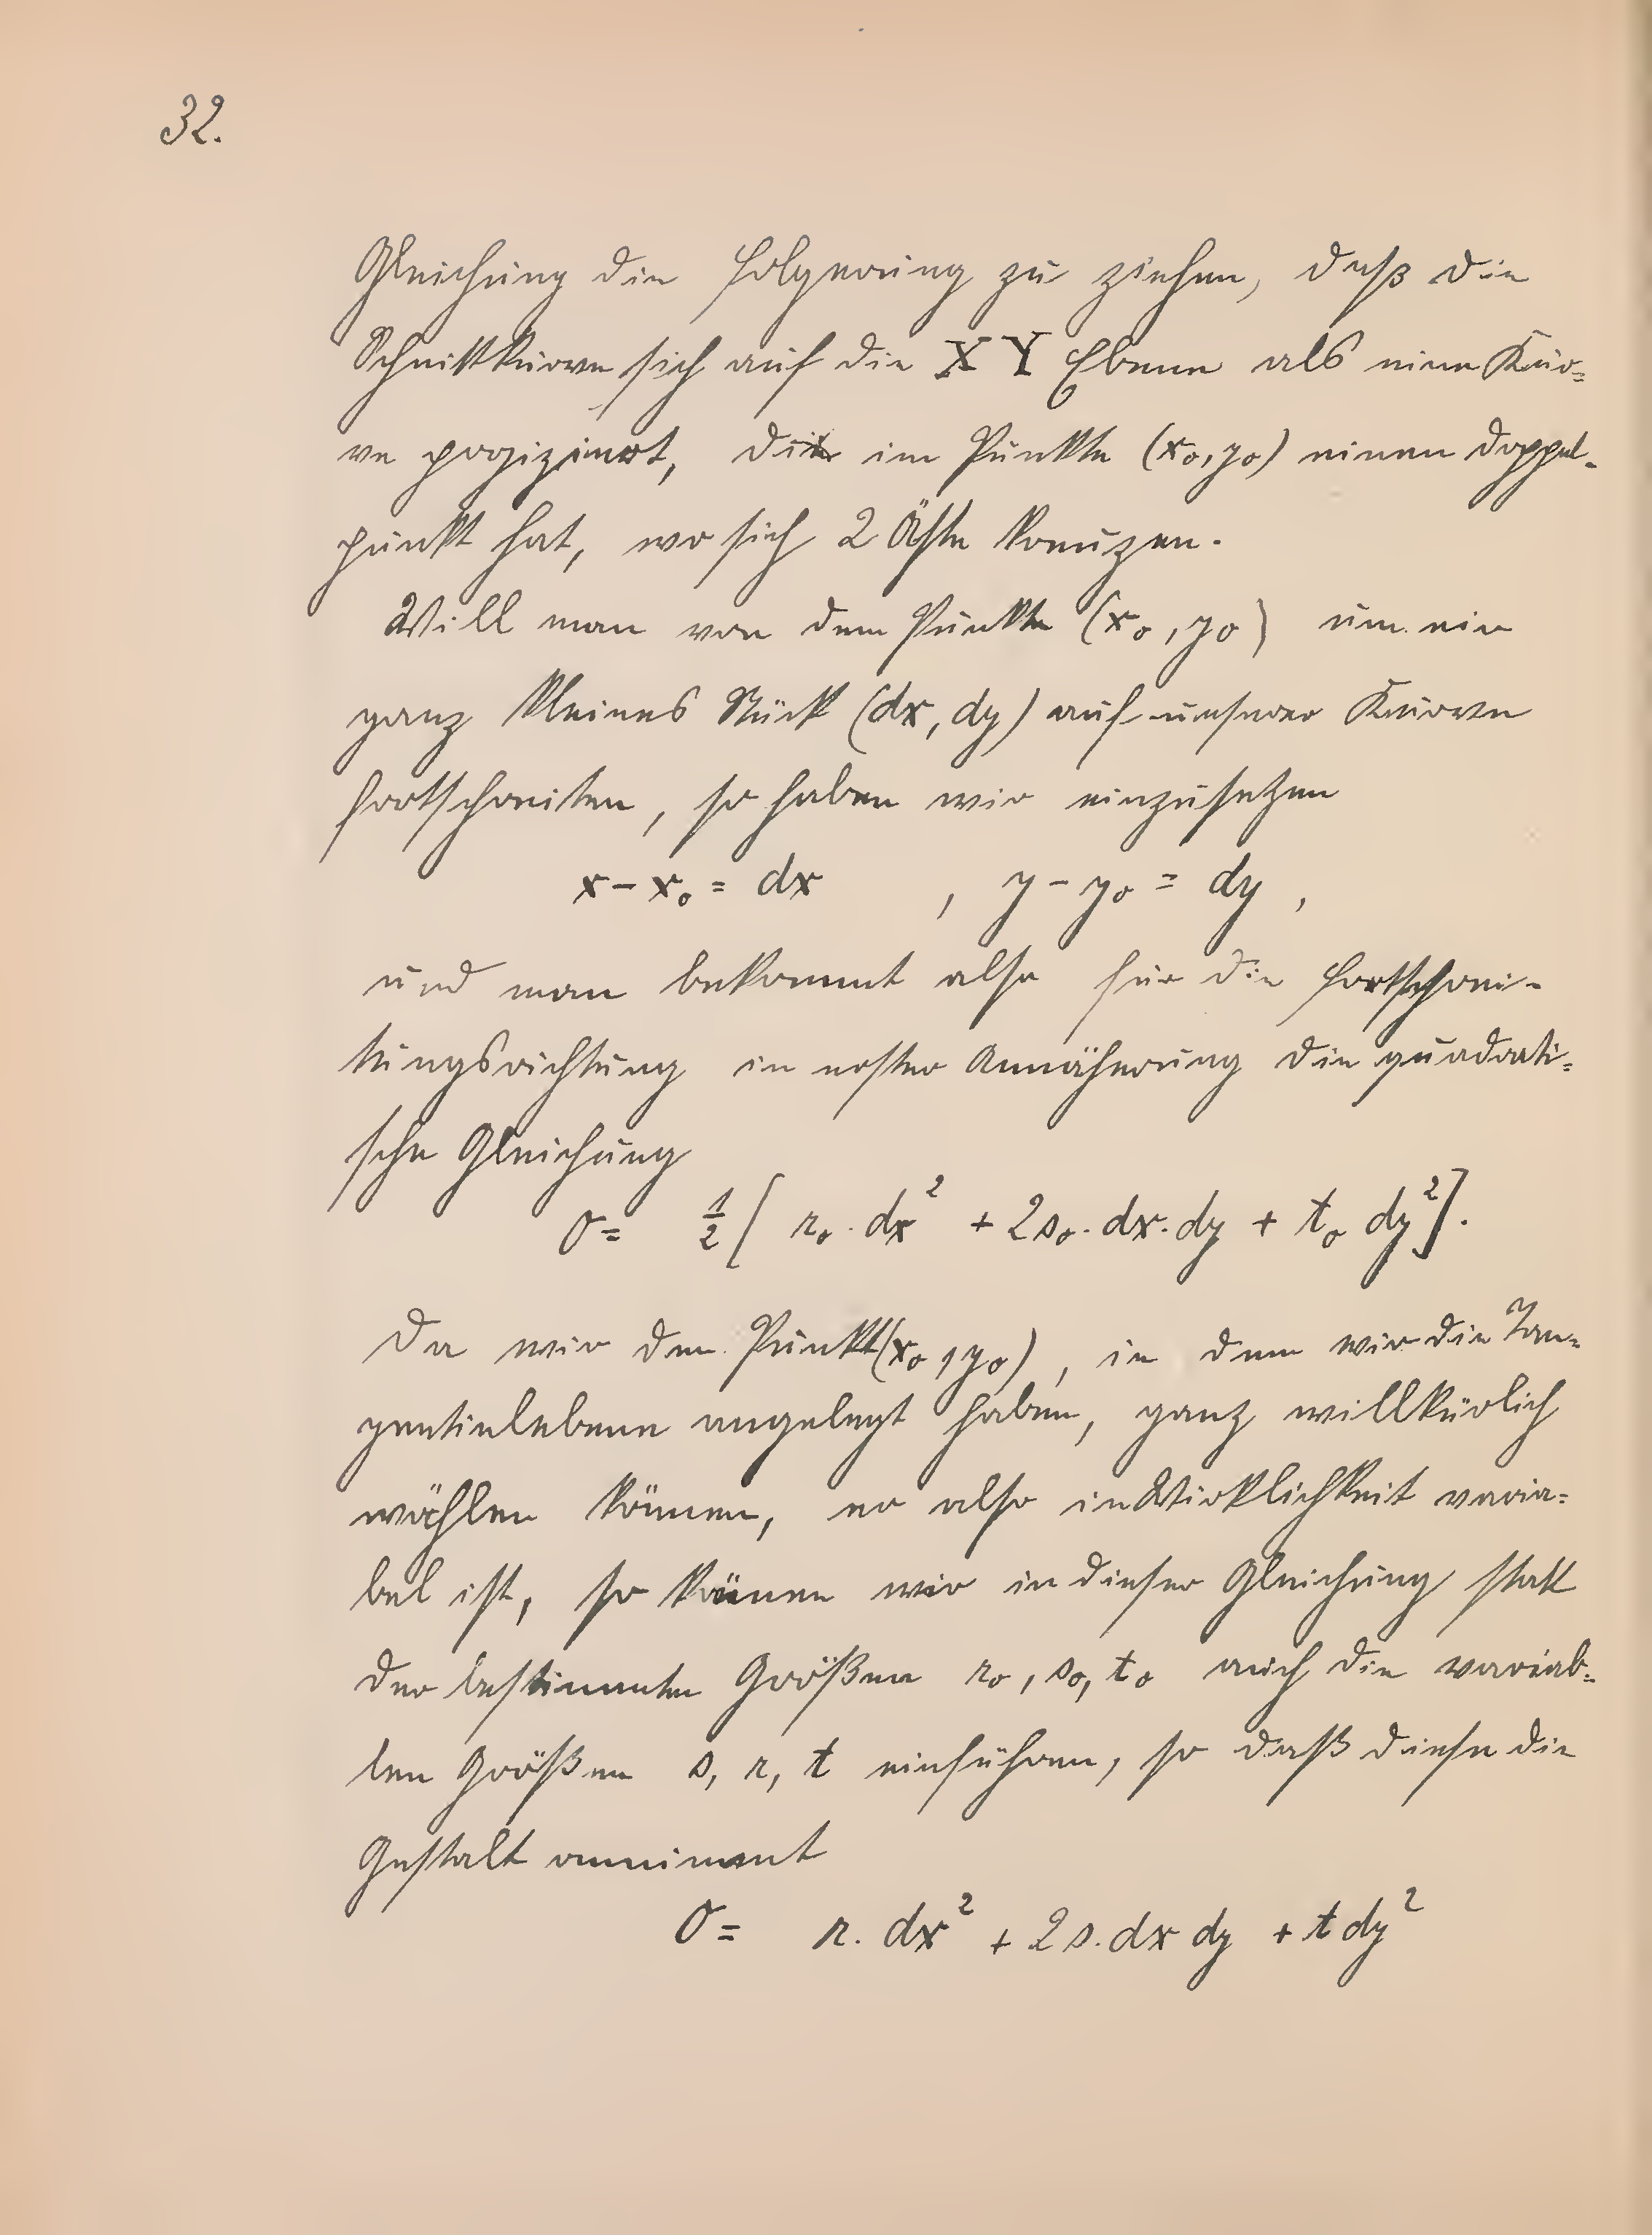 32.
Gleichung die Folgerung zu ziehen, daß die
Schnittkurve sich auf die XY Ebene als eine Kur=
ve projiziert, die im Punkte (x₀, y₀) einen Doppel-
punkt hat, wo sich 2 Äste kreuzen.
Will man von dem Punkte (x₀, y₀) um ein
ganz kleines Stück (dx, dy) auf unserer Kurve
fortschreiten, so haben wir einzusetzen
x - x₀ = dx , y - y₀ = dy ,
und man bekommt also für die Fortschrei-
tungsrichtung in erster Annäherung die quadrati=
sche Gleichung
0 = ½ [ r₀ . dx² + 2s₀ . dx . dy + t₀ dy² ] .
Da wir den Punkt (x₀, y₀) , in dem wir die Tan=
gentialebene angelegt haben, ganz willkürlich
wählen können, er also in Wirklichkeit varia=
bel ist, so können wir in dieser Gleichung statt
der bestimmten Größen r₀, s₀, t₀ auch die variab=
len Größen s, r, t einführen, so daß diese die
Gestalt annimmt
0 = r . dx² + 2 s . dx dy + t dy²